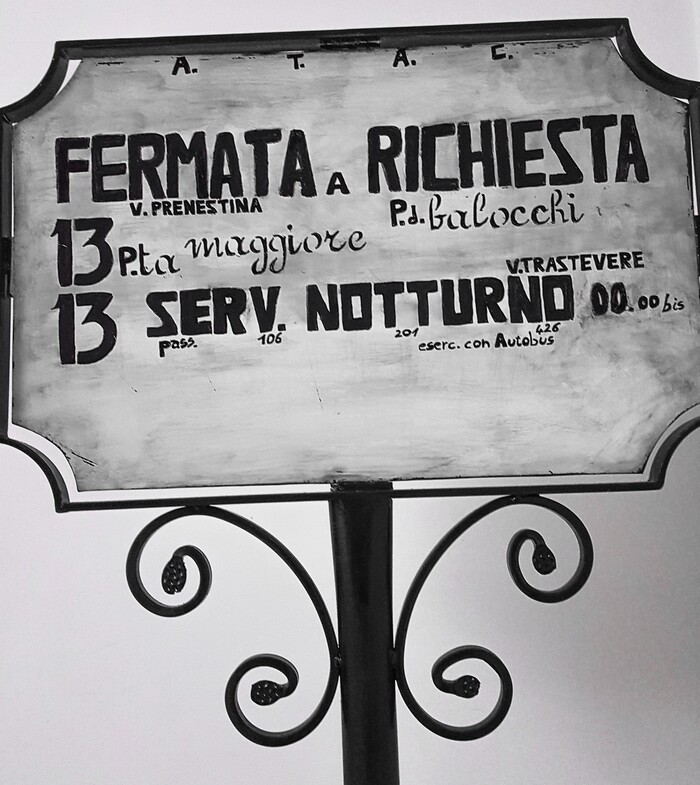 A. T. A. C.
FERMATA A RICHIESTA
V. PRENESTINA
13 P.ta maggiore P.d. balocchi
V. TRASTEVERE
13 SERV. NOTTURNO 00.00 bis
pass. 106 201 426
eserc. con Autobus